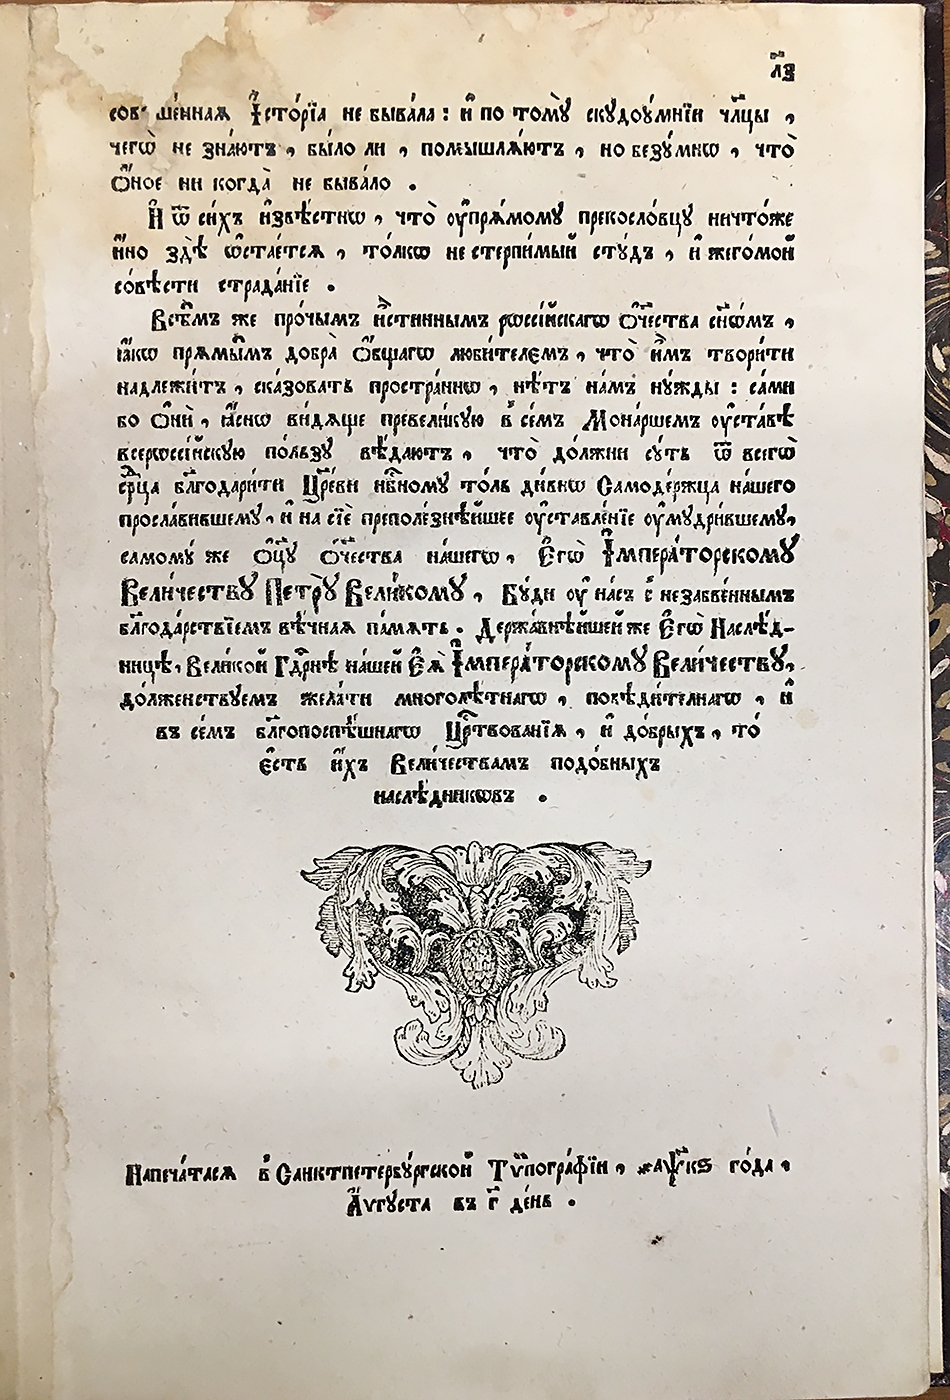 л҃з
сов шéннаѧ І҆стóрїа не бывáла : и҆ по томꙋ̀ скꙋдоꙋ́мнїи чл҃цы ,
чегѡ̀ не знáютъ , бы́ло ли , помышлѧ́ютъ , но безꙋ́мнѡ , чтò
ѻ҆́ное ни когдà не бывáло .
И҆ ѿ си́хъ и҆звѣ́стнѡ , чтò ᲂу҆прѧ́момꙋ прекослóвцꙋ ничтóже
и҆́но здѣ̀ ѡ҆стаéтсѧ , тóлкѡ не стерпи́мый стꙋ́дъ , и҆ жегóмой
сóвѣсти страдáнїе .
Всѣ̑мъ же прóчымъ и҆́стиннымъ рѡссі́йскагѡ ѻ҆ч҃ества сн҃ѡмъ ,
ꙗ҆́кѡ прѧмы̑мъ добрà ѻ҆́бщагѡ люби́телємъ , чтò и҆̀мъ твори́ти
надлежи́тъ , скáзовать прострáннѡ , нѣ́тъ нáмъ нꙋ́жды : сáми
бо ѻ҆ни̂ , ꙗ҆́снѡ ви́дѧще превели́кꙋю в҆ сéмъ Монáршемъ ᲂу҆стáвѣ
всерѡссі́йскꙋю пóльзꙋ вѣ́даютъ , чтò дóлжни сꙋ́ть ѿ всегѡ̀
срⷣца бл҃годари́ти Цр҃еви нбⷭ҇номꙋ тóль ди́внѡ Самодéржца нáшего
прослáвившемꙋ , и҆ на сїè преполéзнѣйшее ᲂу҆ставлéнїе ᲂу҆мꙋдри́вшемꙋ ,
самомꙋ́ же Ѻ҆ц҃ꙋ̀ ѻ҆ч҃ества нáшегѡ , Є҆гѡ̀ І҆мперáторскомꙋ
Вели́чествꙋ Петрꙋ̀ Вели́комꙋ , Бꙋ́ди ᲂу҆ нáсъ с҆ незабвéннымъ
бл҃годáрствїемъ вѣ́чнаѧ пáмѧть . Держáвнѣйшей же Є҆гѡ̀ Наслѣ́д-
ницѣ , Вели́кой Гдⷭ҇рнѣ нáшей Є҆ѧ̀ І҆мперáторскомꙋ Вели́чествꙋ ,
дóлженствꙋемъ желáти многолѣ́тнагѡ , побѣди́телнагѡ , и҆
въ сéмъ бл҃гопоспѣ́шнагѡ Црⷭ҇твованїѧ , и҆ дóбрыхъ , тó
є҆́сть и҆́хъ Вели́чествамъ подóбныхъ
наслѣ́дникѡвъ .
Напечáтасѧ в҆ Санктпетербꙋ́ргской Тѷпогрáфїи , ҂аѱ҃кѕ гóда ,
А҆́ѵгꙋста въ г҃ дéнь .